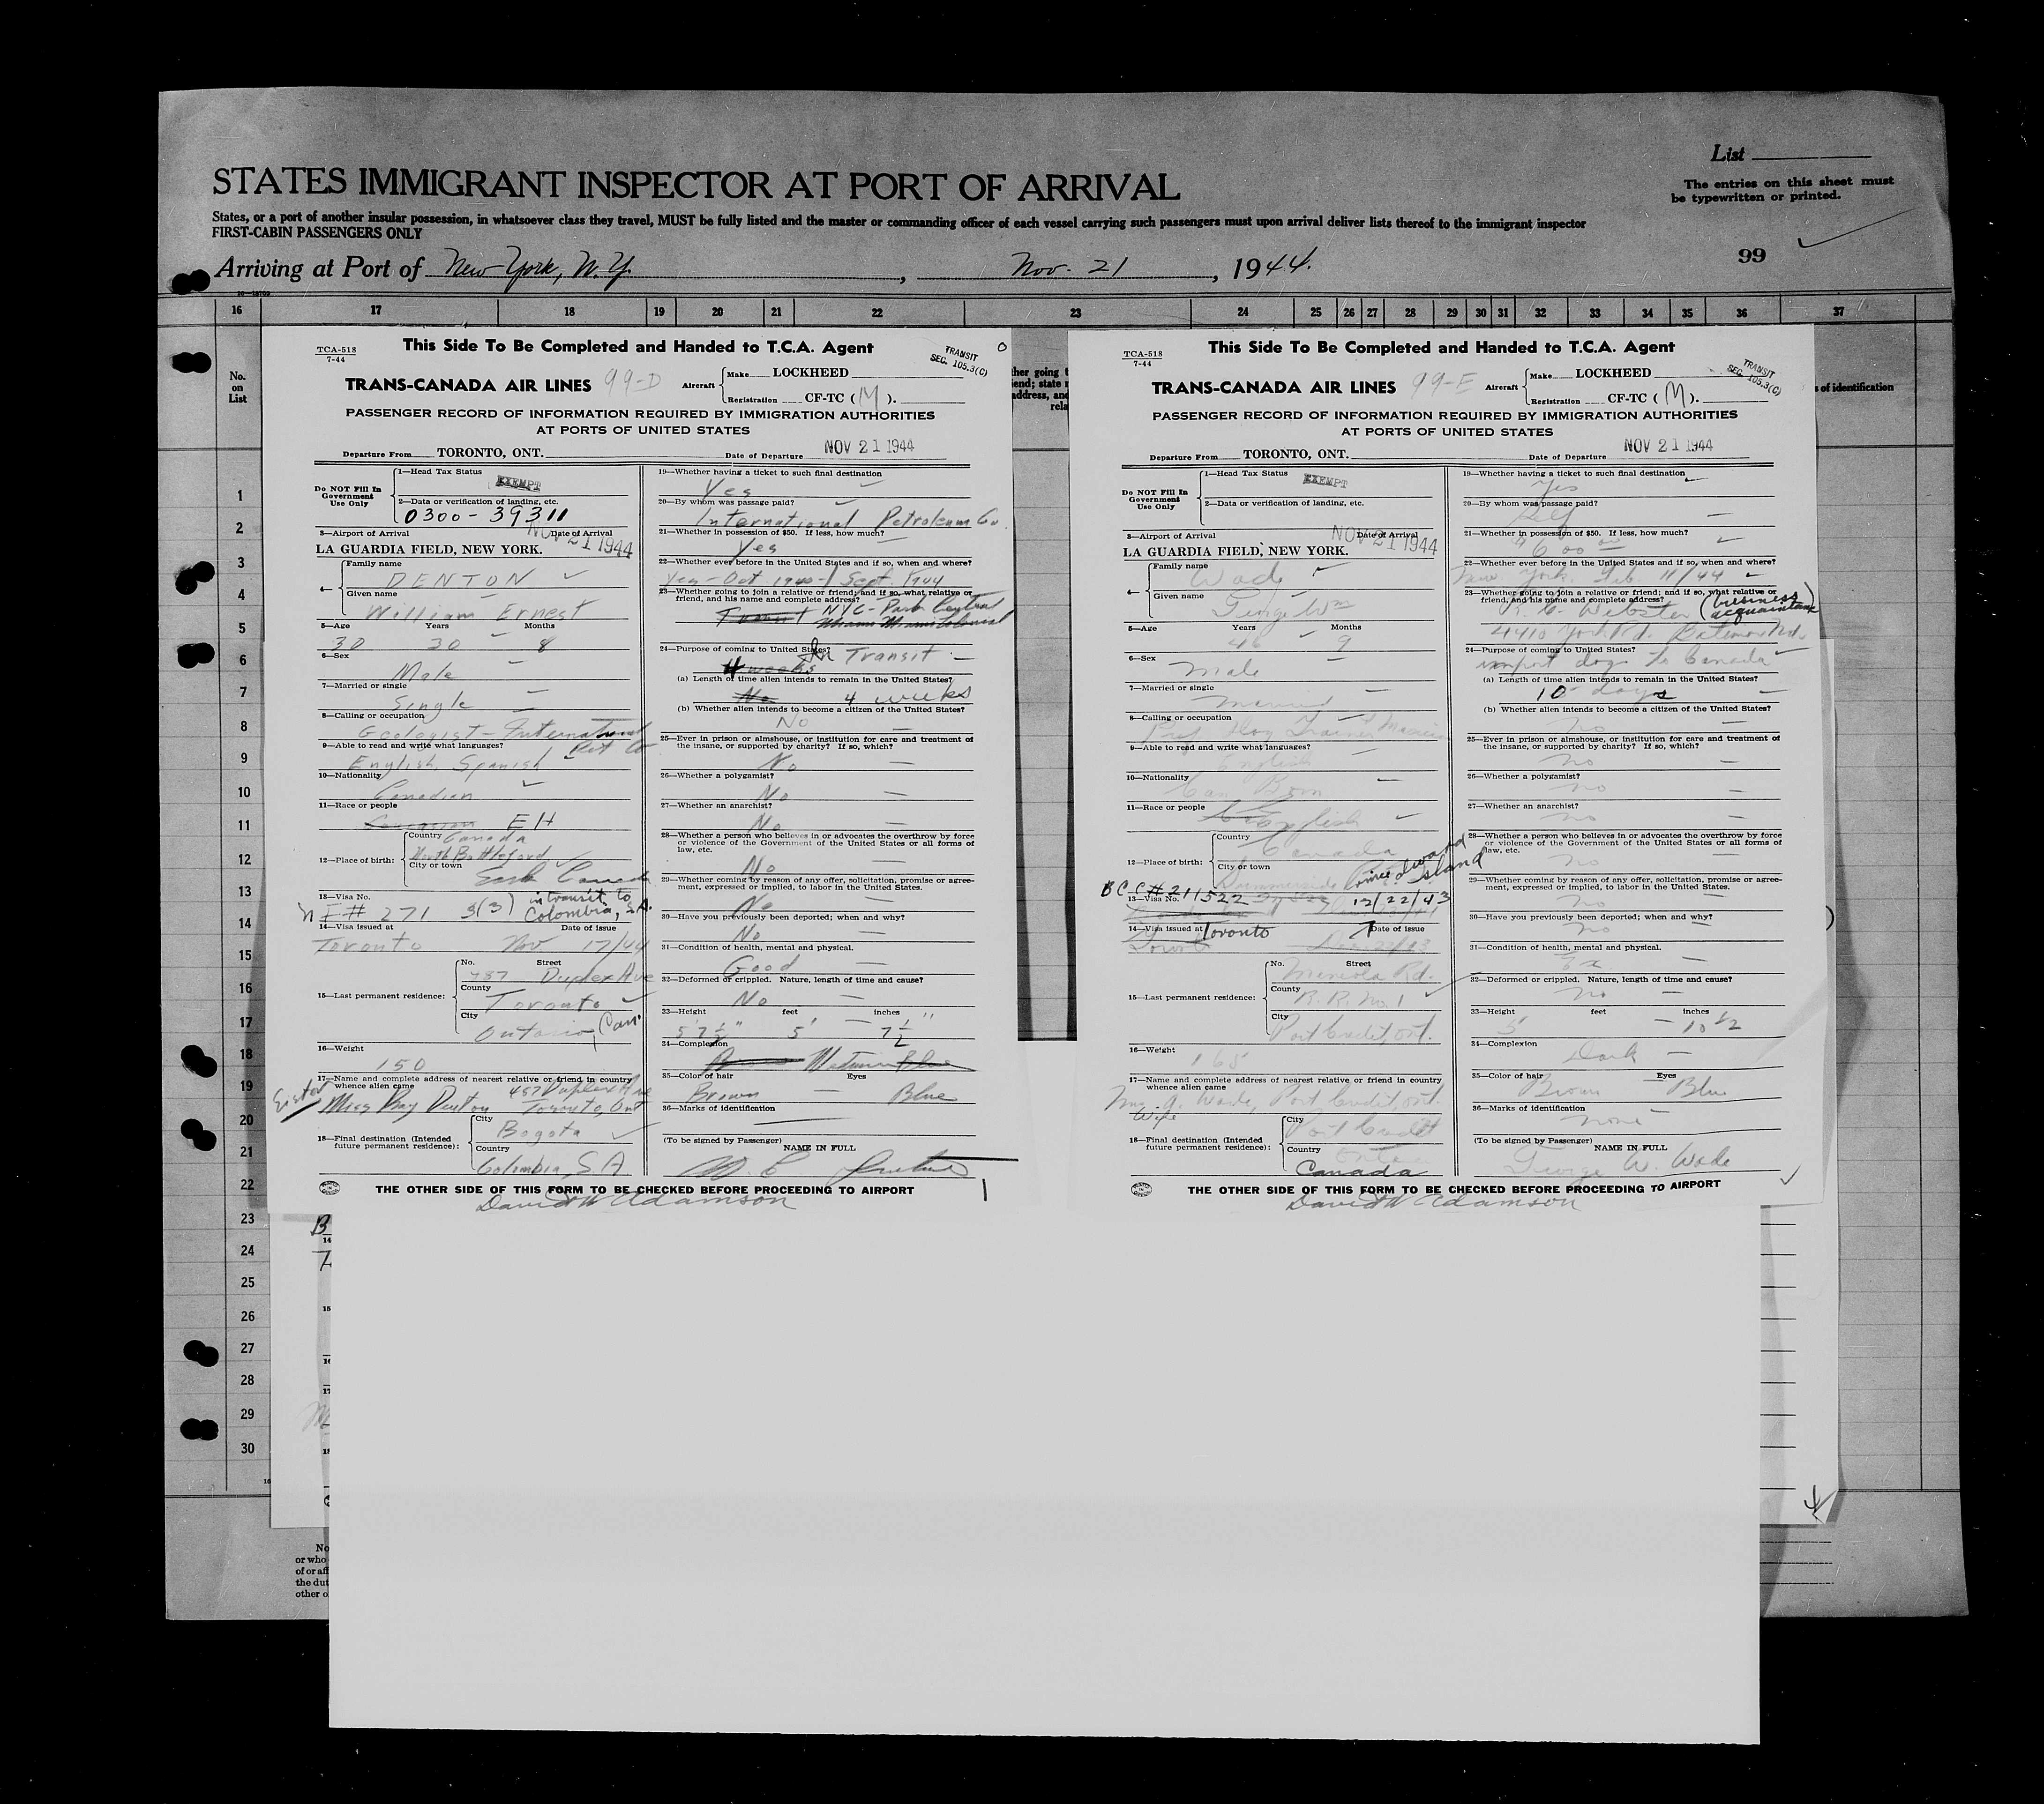 List
The entries on this sheet must
be typewritten or printed.
STATES IMMIGRANT INSPECTOR AT PORT OF ARRIVAL
States, or a port of another insular possession, in whatsoever class they travel, MUST be fully listed and the master or commanding officer of each vessel carrying such passengers must upon arrival deliver lists thereof to the immigrant inspector
FIRST-CABIN PASSENGERS ONLY
99
Arriving at Port of New York, N.Y. , Nov. 21 , 1944.
16 17 18 19 20 21 22 23 24 25 26 27 28 29 30 31 32 33 34 35 36 37
No.
on
List
1
2
3
4
5
6
7
8
9
10
11
12
13
14
15
16
17
18
19
20
21
22
23
24
25
26
27
28
29
30
TCA-518
7-44
This Side To Be Completed and Handed to T.C.A. Agent
TRANSIT
SEC. 105.3(C)
TRANS-CANADA AIR LINES 99-D
Aircraft Make LOCKHEED
Registration CF-TC (M).
PASSENGER RECORD OF INFORMATION REQUIRED BY IMMIGRATION AUTHORITIES
AT PORTS OF UNITED STATES
Departure From TORONTO, ONT. Date of Departure NOV 21 1944
Do NOT Fill In
Government
Use Only
1—Head Tax Status EXEMPT
2—Data or verification of landing, etc.
0300-39311
3—Airport of Arrival Date of Arrival
LA GUARDIA FIELD, NEW YORK. NOV 21 1944
4— Family name
DENTON
Given name
William Ernest
5—Age Years Months
30 30 8
6—Sex
Male
7—Married or single
Single
8—Calling or occupation
Geologist - International
Pet Co
9—Able to read and write what languages?
English, Spanish
10—Nationality
Canadian
11—Race or people
EH
12—Place of birth: Country Canada
North Battleford
City or town
Sask Canada
13—Visa No. in transit to
# 271 3(3) Colombia, S.A.
14—Visa issued at Date of issue
Toronto Nov 17/44
15—Last permanent residence: No. Street
487 Duplex Ave
County
Toronto
City
Ontario, Can.
16—Weight
150
17—Name and complete address of nearest relative or friend in country
whence alien came 487 Duplex Ave
Sister Miss Denton Toronto, Ont
18—Final destination (Intended
future permanent residence): City
Bogota
Country
Colombia, S.A
19—Whether having a ticket to such final destination
Yes
20—By whom was passage paid?
International Petroleum Co.
21—Whether in possession of $50. If less, how much?
Yes
22—Whether ever before in the United States and if so, when and where?
Yes - Oct 1940 - Sept. 1944
23—Whether going to join a relative or friend; and if so, what relative or
friend, and his name and complete address?
NYC - Park Central
24—Purpose of coming to United States?
In Transit
4 weeks
(a) Length of time alien intends to remain in the United States?
No 4 weeks
(b) Whether alien intends to become a citizen of the United States?
No
25—Ever in prison or almshouse, or institution for care and treatment of
the insane, or supported by charity? If so, which?
No
26—Whether a polygamist?
No
27—Whether an anarchist?
No
28—Whether a person who believes in or advocates the overthrow by force
or violence of the Government of the United States or all forms of
law, etc.
No
29—Whether coming by reason of any offer, solicitation, promise or agree-
ment, expressed or implied, to labor in the United States.
No
30—Have you previously been deported; when and why?
No
31—Condition of health, mental and physical.
Good
32—Deformed or crippled. Nature, length of time and cause?
No
33—Height feet inches
5' 7½" 5' 7½"
34—Complexion
Medium
35—Color of hair Eyes
Brown Blue
36—Marks of identification
(To be signed by Passenger)
NAME IN FULL
THE OTHER SIDE OF THIS FORM TO BE CHECKED BEFORE PROCEEDING TO AIRPORT
David W Adamson
TCA-518
7-44
This Side To Be Completed and Handed to T.C.A. Agent
TRANSIT
SEC. 105.3(C)
TRANS-CANADA AIR LINES 99-E
Aircraft Make LOCKHEED
Registration CF-TC (M).
PASSENGER RECORD OF INFORMATION REQUIRED BY IMMIGRATION AUTHORITIES
AT PORTS OF UNITED STATES
Departure From TORONTO, ONT. Date of Departure NOV 21 1944
Do NOT Fill In
Government
Use Only
1—Head Tax Status EXEMPT
2—Data or verification of landing, etc.
3—Airport of Arrival Date of Arrival
LA GUARDIA FIELD, NEW YORK. NOV 21 1944
4— Family name
Wade
Given name
George Wm
5—Age Years Months
46 9
6—Sex
Male
7—Married or single
Married
8—Calling or occupation
Prof Dog Trainer
9—Able to read and write what languages?
English
10—Nationality
Can Born
11—Race or people
English
12—Place of birth: Country
Canada
City or town
Summerside Prince Edward Island
BCC # 211522 12/22/43
13—Visa No.
14—Visa issued at Toronto Date of issue
Dec 22/43
15—Last permanent residence: No. Street
Mineola Rd.
County
R.R. No. 1
City
Port Credit, Ont.
16—Weight
165
17—Name and complete address of nearest relative or friend in country
whence alien came
Wade, Port Credit, Ont.
Wife
18—Final destination (Intended
future permanent residence): City
Port Credit
Country
Canada
19—Whether having a ticket to such final destination
Yes
20—By whom was passage paid?
Self
21—Whether in possession of $50. If less, how much?
22—Whether ever before in the United States and if so, when and where?
New York. Feb. 11/44
23—Whether going to join a relative or friend; and if so, what relative or
friend, and his name and complete address? (business
Webster acquaintance)
4410 York Rd. Baltimore Md.
24—Purpose of coming to United States?
import dogs to Canada
(a) Length of time alien intends to remain in the United States?
10 days
(b) Whether alien intends to become a citizen of the United States?
no
25—Ever in prison or almshouse, or institution for care and treatment of
the insane, or supported by charity? If so, which?
no
26—Whether a polygamist?
no
27—Whether an anarchist?
no
28—Whether a person who believes in or advocates the overthrow by force
or violence of the Government of the United States or all forms of
law, etc.
no
29—Whether coming by reason of any offer, solicitation, promise or agree-
ment, expressed or implied, to labor in the United States.
no
30—Have you previously been deported; when and why?
no
31—Condition of health, mental and physical.
32—Deformed or crippled. Nature, length of time and cause?
no
33—Height feet inches
5' 10½
34—Complexion
Dark
35—Color of hair Eyes
Brown Blue
36—Marks of identification
none
(To be signed by Passenger)
NAME IN FULL
George W. Wade
THE OTHER SIDE OF THIS FORM TO BE CHECKED BEFORE PROCEEDING TO AIRPORT
David W Adamson